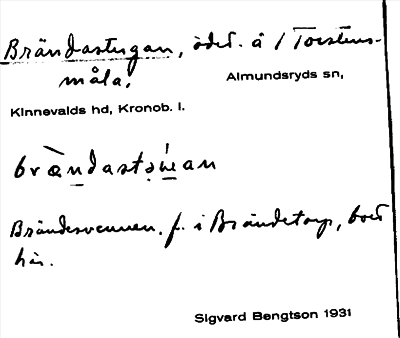 Brändastugan, ödet. å 1 Torstens-
måla.
Almundsryds sn,
Kinnevalds hd, Kronob. l.
brændast
Brändesvennen, f. i Brändetorp, bott
här.
Sigvard Bengtson 1931